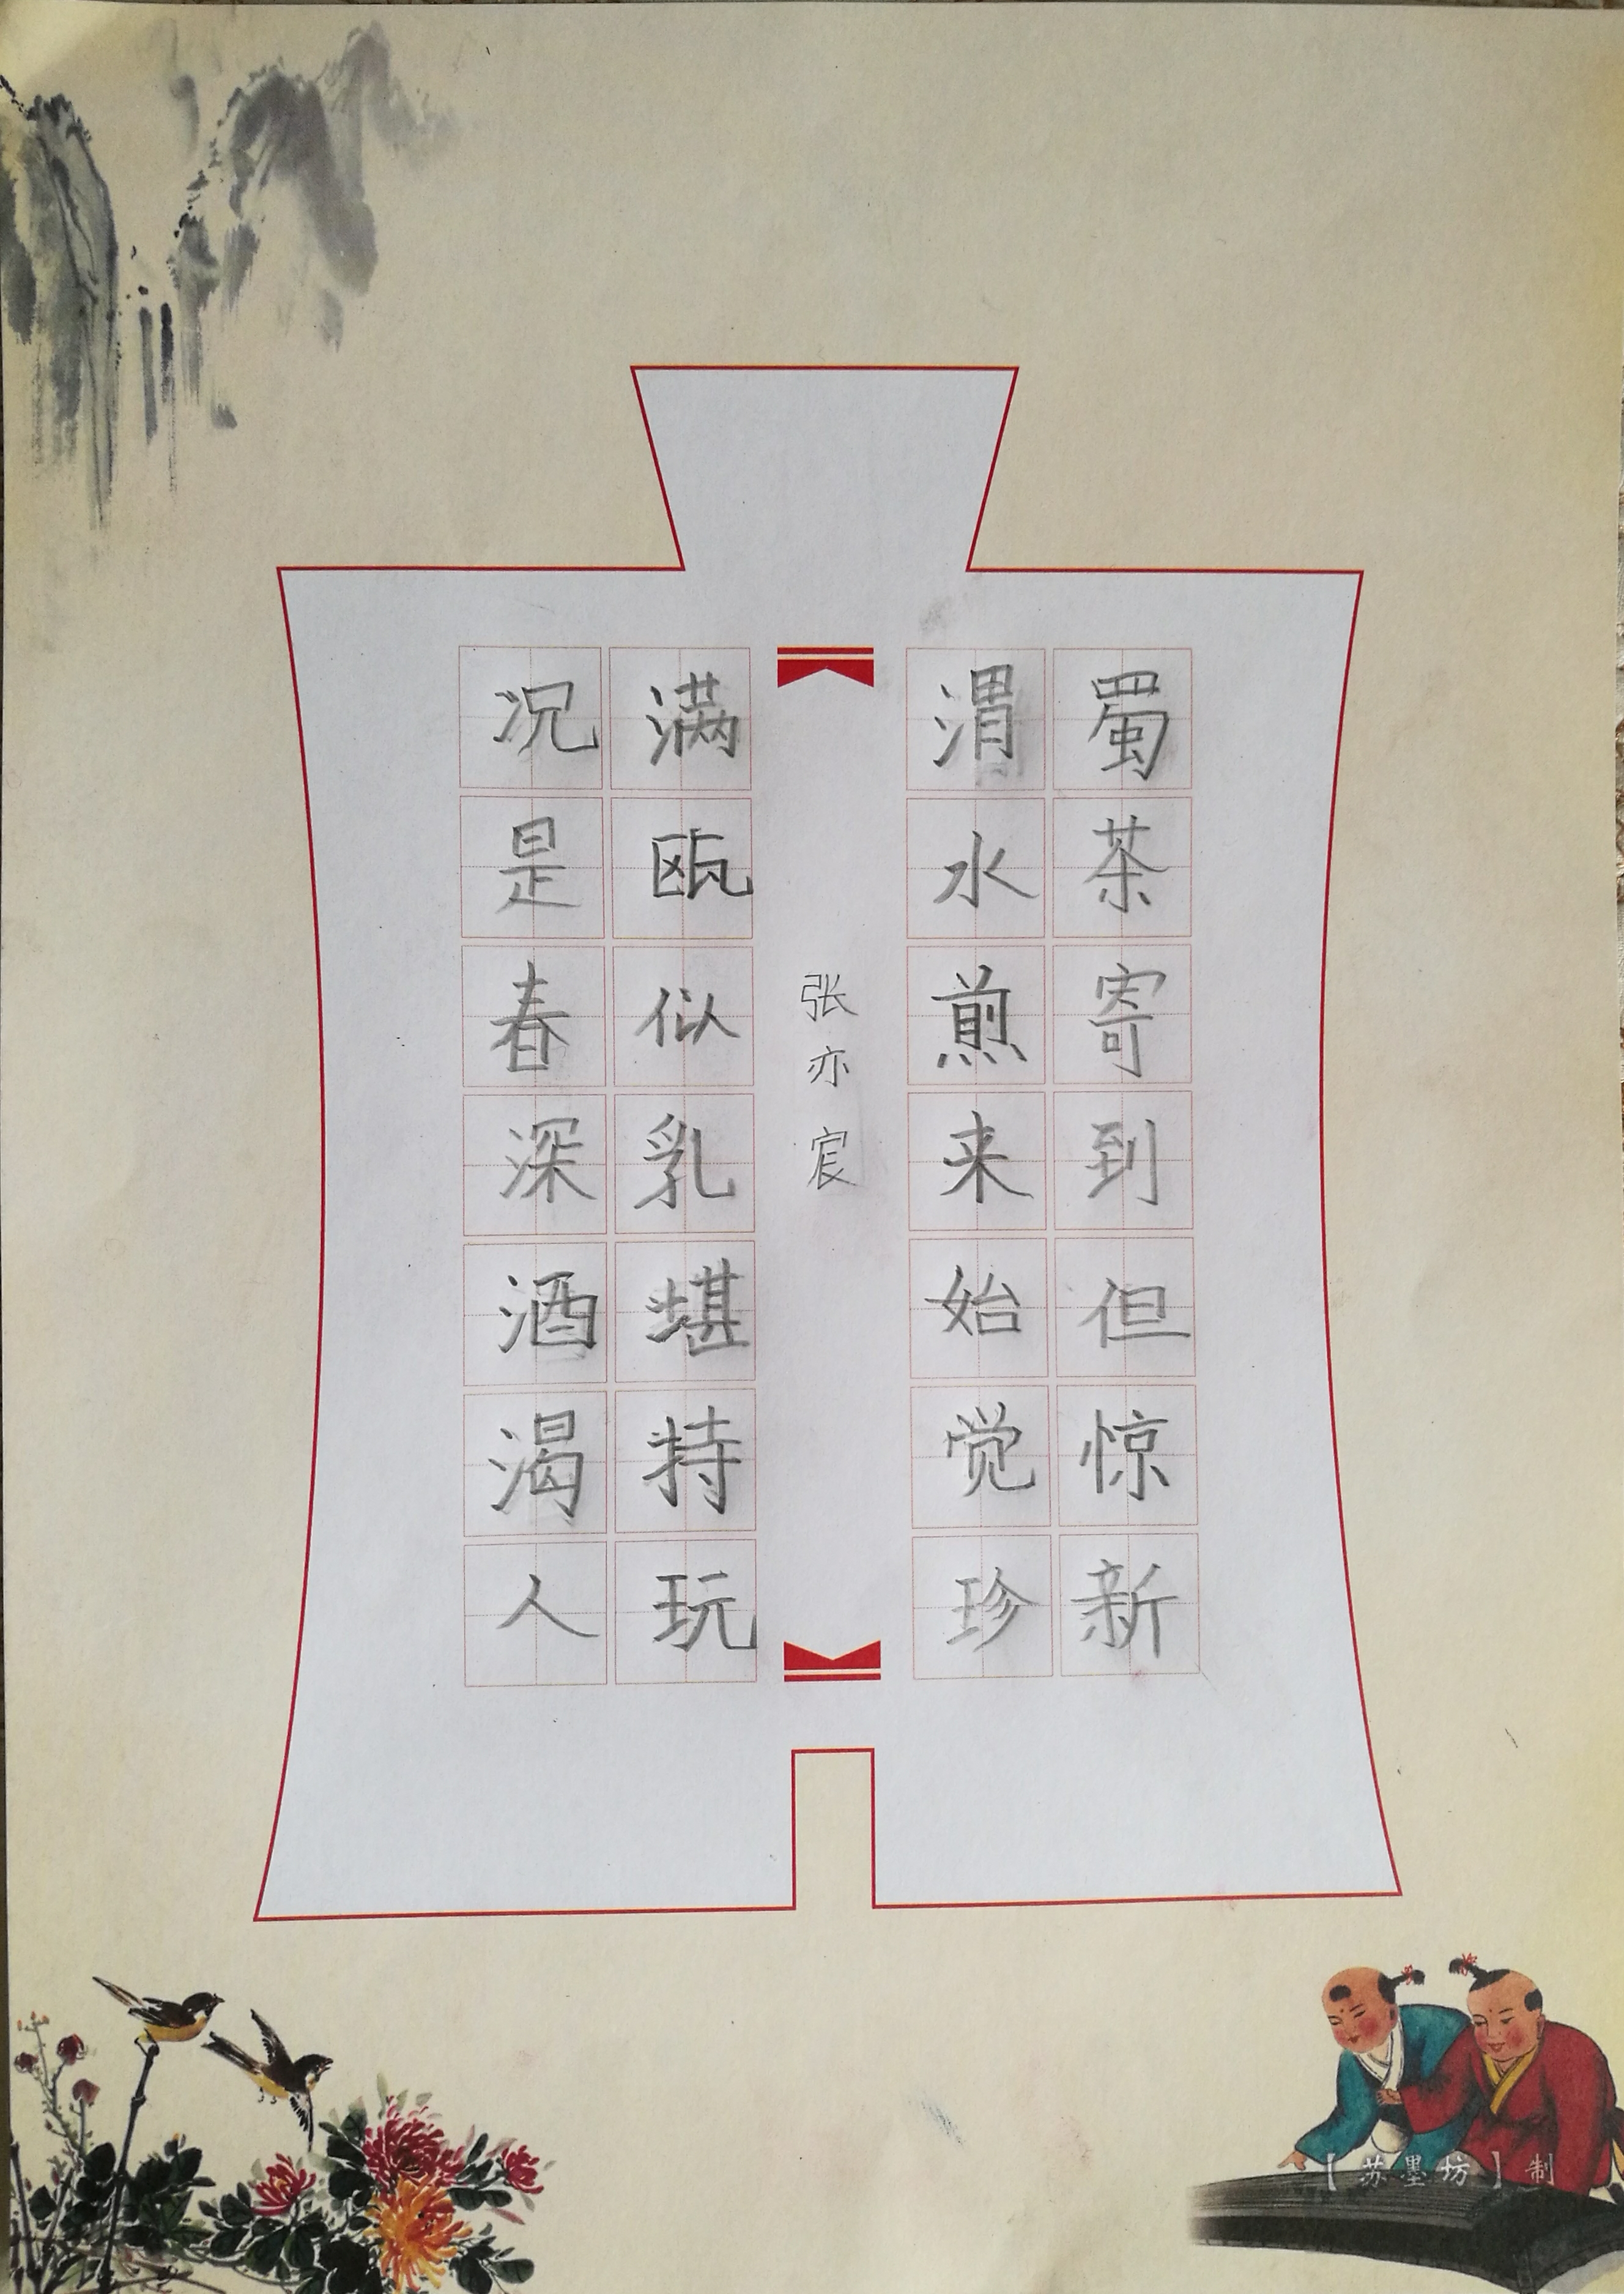 蜀茶寄到但惊新
渭水煎来始觉珍
张亦宸
满瓯似乳堪持玩
况是春深酒渴人
【苏墨坊】制